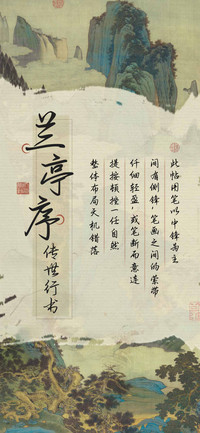 兰亭序
传世行书
此帖用笔以中锋为主
间有侧锋，笔画之间的萦带
纤细轻盈，或笔断而意连
提按顿挫一任自然
整体布局天机错落